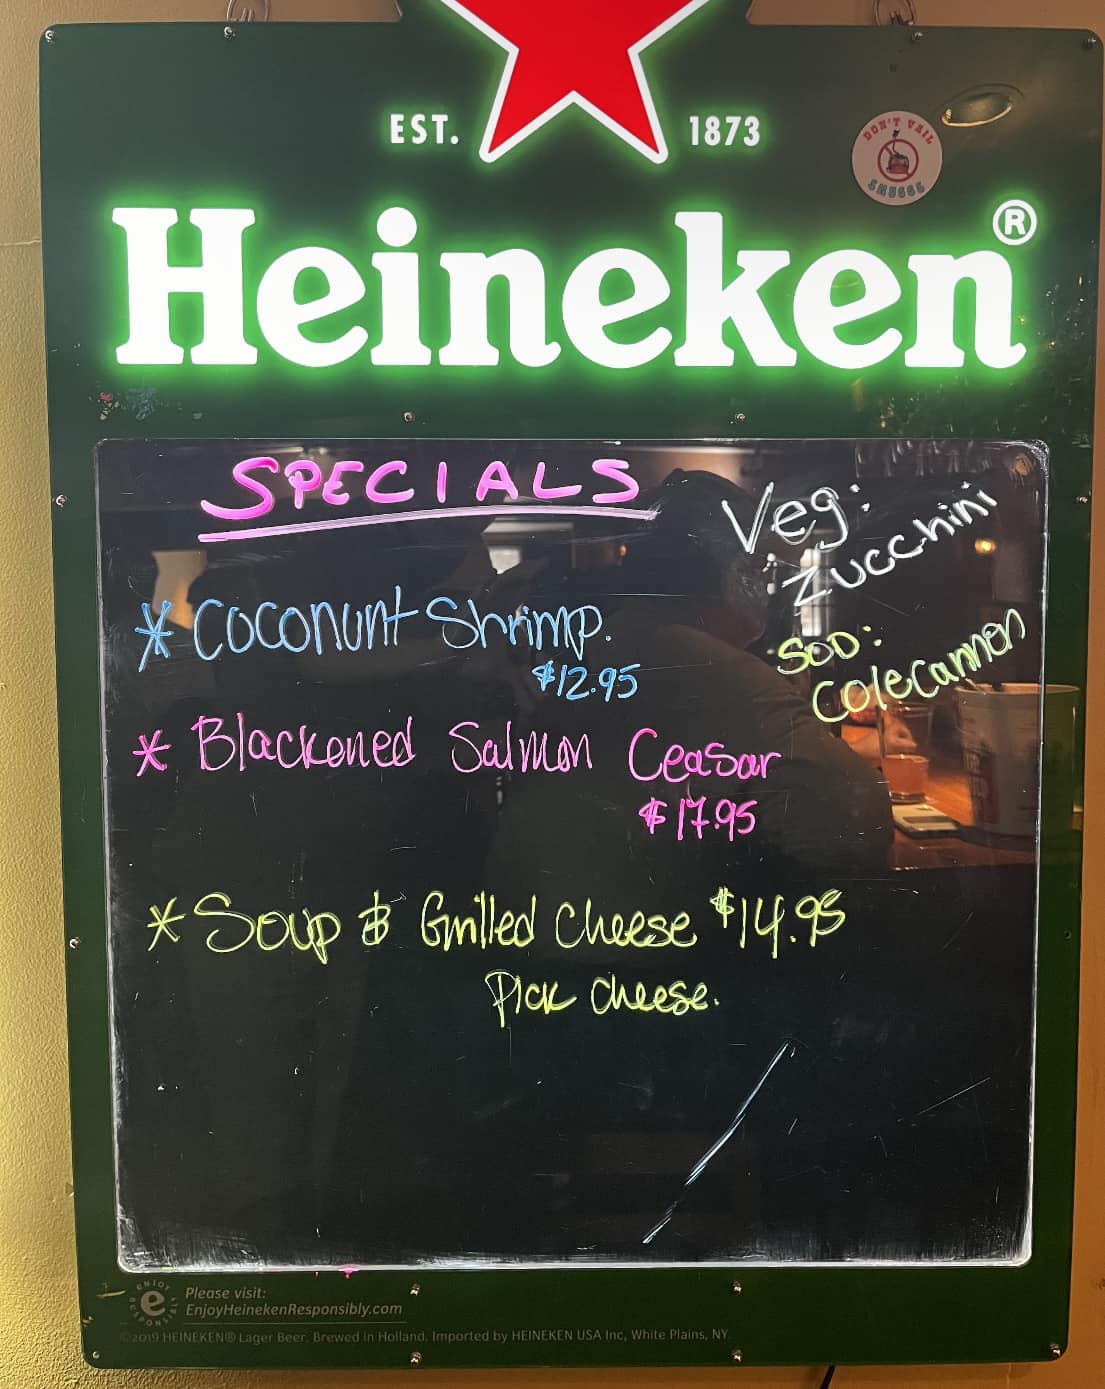 EST. 1873
DON'T VAIL
SMUGGS
Heineken®
SPECIALS
Veg:
Zucchini
* Coconunt Shrimp.
$12.95
SOD:
Colecannon
* Blackened Salmon Ceasar
$17.95
* Soup & Grilled Cheese $14.95
Pick cheese.
ENJOY
RESPONSIBLY
e
Please visit:
EnjoyHeinekenResponsibly.com
©2019 HEINEKEN® Lager Beer. Brewed in Holland. Imported by HEINEKEN USA Inc, White Plains, NY.